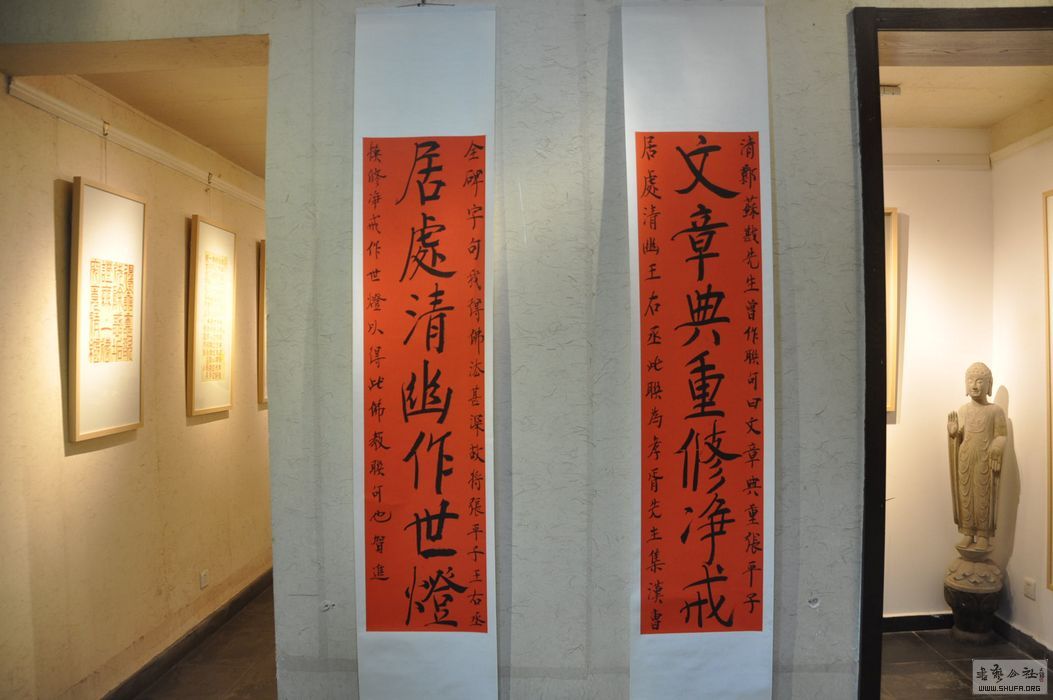 清鄭蘇戡先生曾作聯句曰文章典重張平子
文章典重修净戒
居處清幽王右丞此聯為孝胥先生集漢曹
全碑字句我得佛法甚深故將張平子王右丞
居處清幽作世燈
換修净戒作世燈以得此佛教聯句也賀進
書藝公社
WWW.SHUFA.ORG